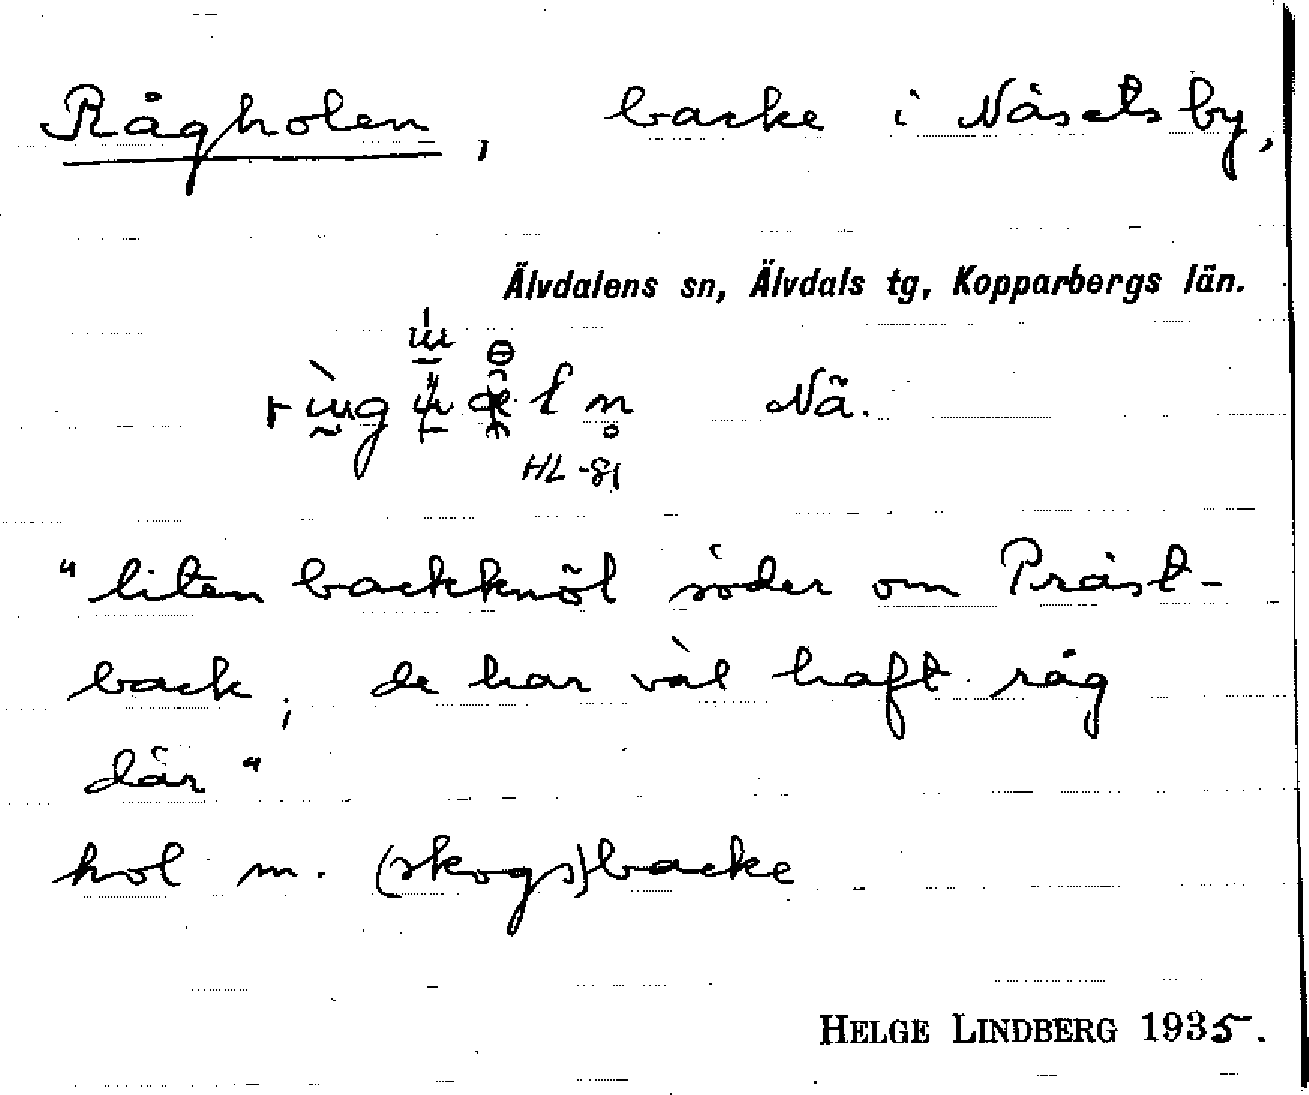 Rågholen, backe i Näsets by,
Älvdalens sn, Älvdals tg, Kopparbergs län.
Nä.
HL -81
"liten backknöl söder om Präst-
back, de har väl haft råg
där"
hol m. (skogs)backe
HELGE LINDBERG 1935.